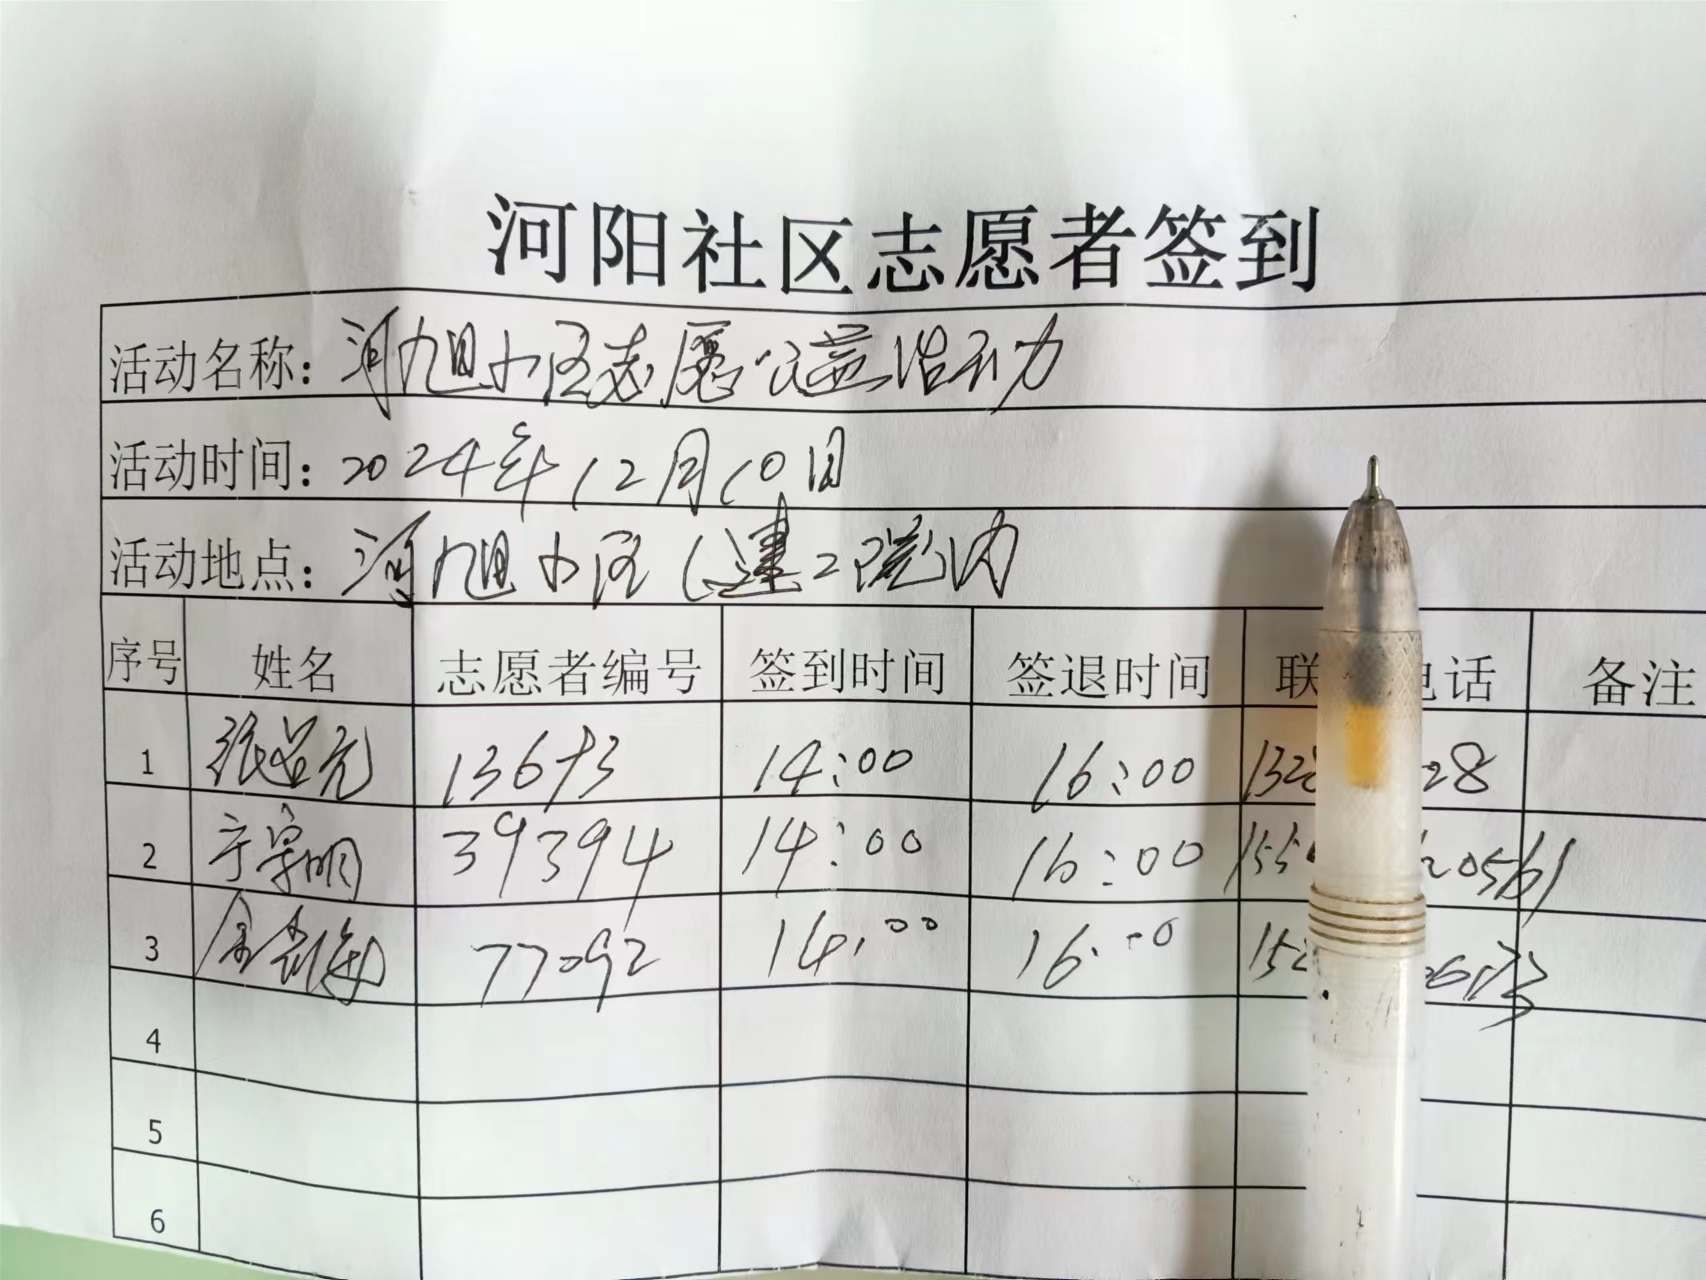 河阳社区志愿者签到
活动名称：河旭小区志愿公益活动
活动时间：2024年12月10日
活动地点：河旭小区（建工院内
序号 姓名 志愿者编号 签到时间 签退时间 联 电话 备注
1 张 元 13673 14:00 16:00 132 28
2 于宗明 39394 14:00 16:00 155 20561
3 金 海 77092 14:00 16:00 152
4
5
6